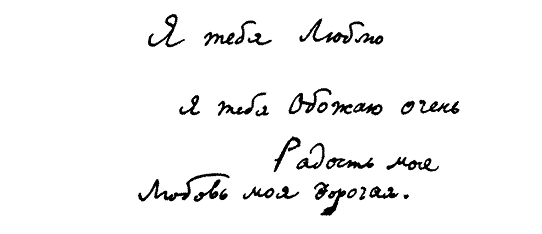 Я тебя Люблю
я тебя Обожаю очень
Радость моя
Любовь моя дорогая.